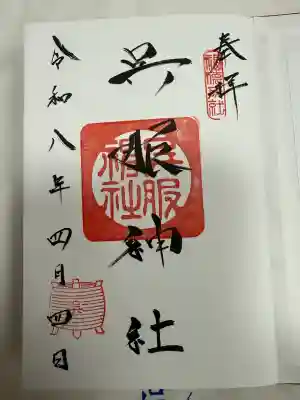 奉拝
呉服神社
呉服神社
令和八年四月四日